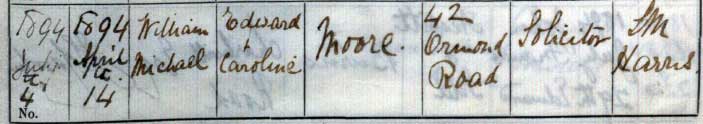 1894 1894 William Edward Moore. 42 Solicitor SM
April Michael & Ormond Harris
4 14 Caroline Road
No.